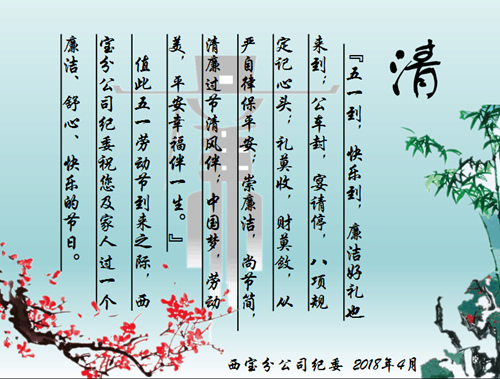 清
『五一到，快乐到，廉洁好礼也
来到；公车封，宴请停，八项规
定记心头；礼莫收，财莫敛，从
严自律保平安；崇廉洁，尚节简，
清廉过节清风伴；中国梦，劳动
美，平安幸福伴一生。』
值此五一劳动节到来之际，西
宝分公司纪委祝您及家人过一个
廉洁、舒心、快乐的节日。
西宝分公司纪委 2018年4月